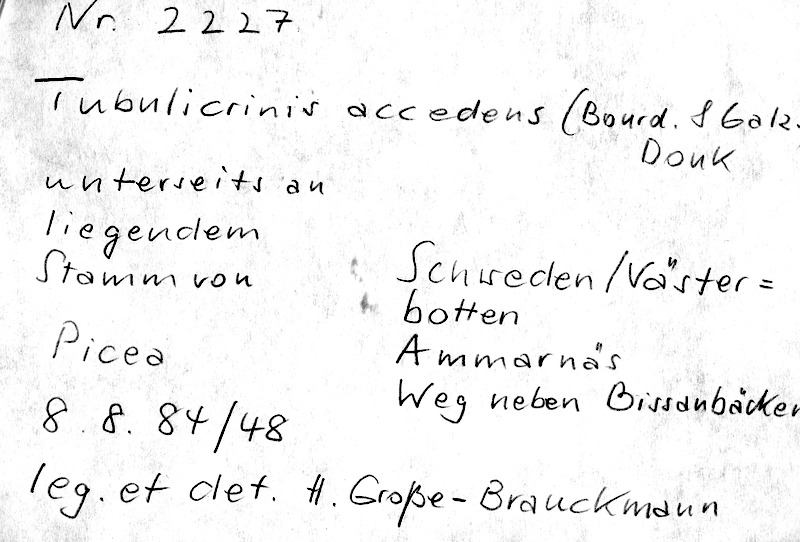 Nr. 2227
Tubulicrinis accedens (Bourd. & Galz.
Donk
unterseits an
liegendem
Stamm von
Picea
8.8.84/48
Schweden/Väster=
botten
Ammarnäs
Weg neben Bissanbäcken
leg. et det. H. Große-Brauckmann